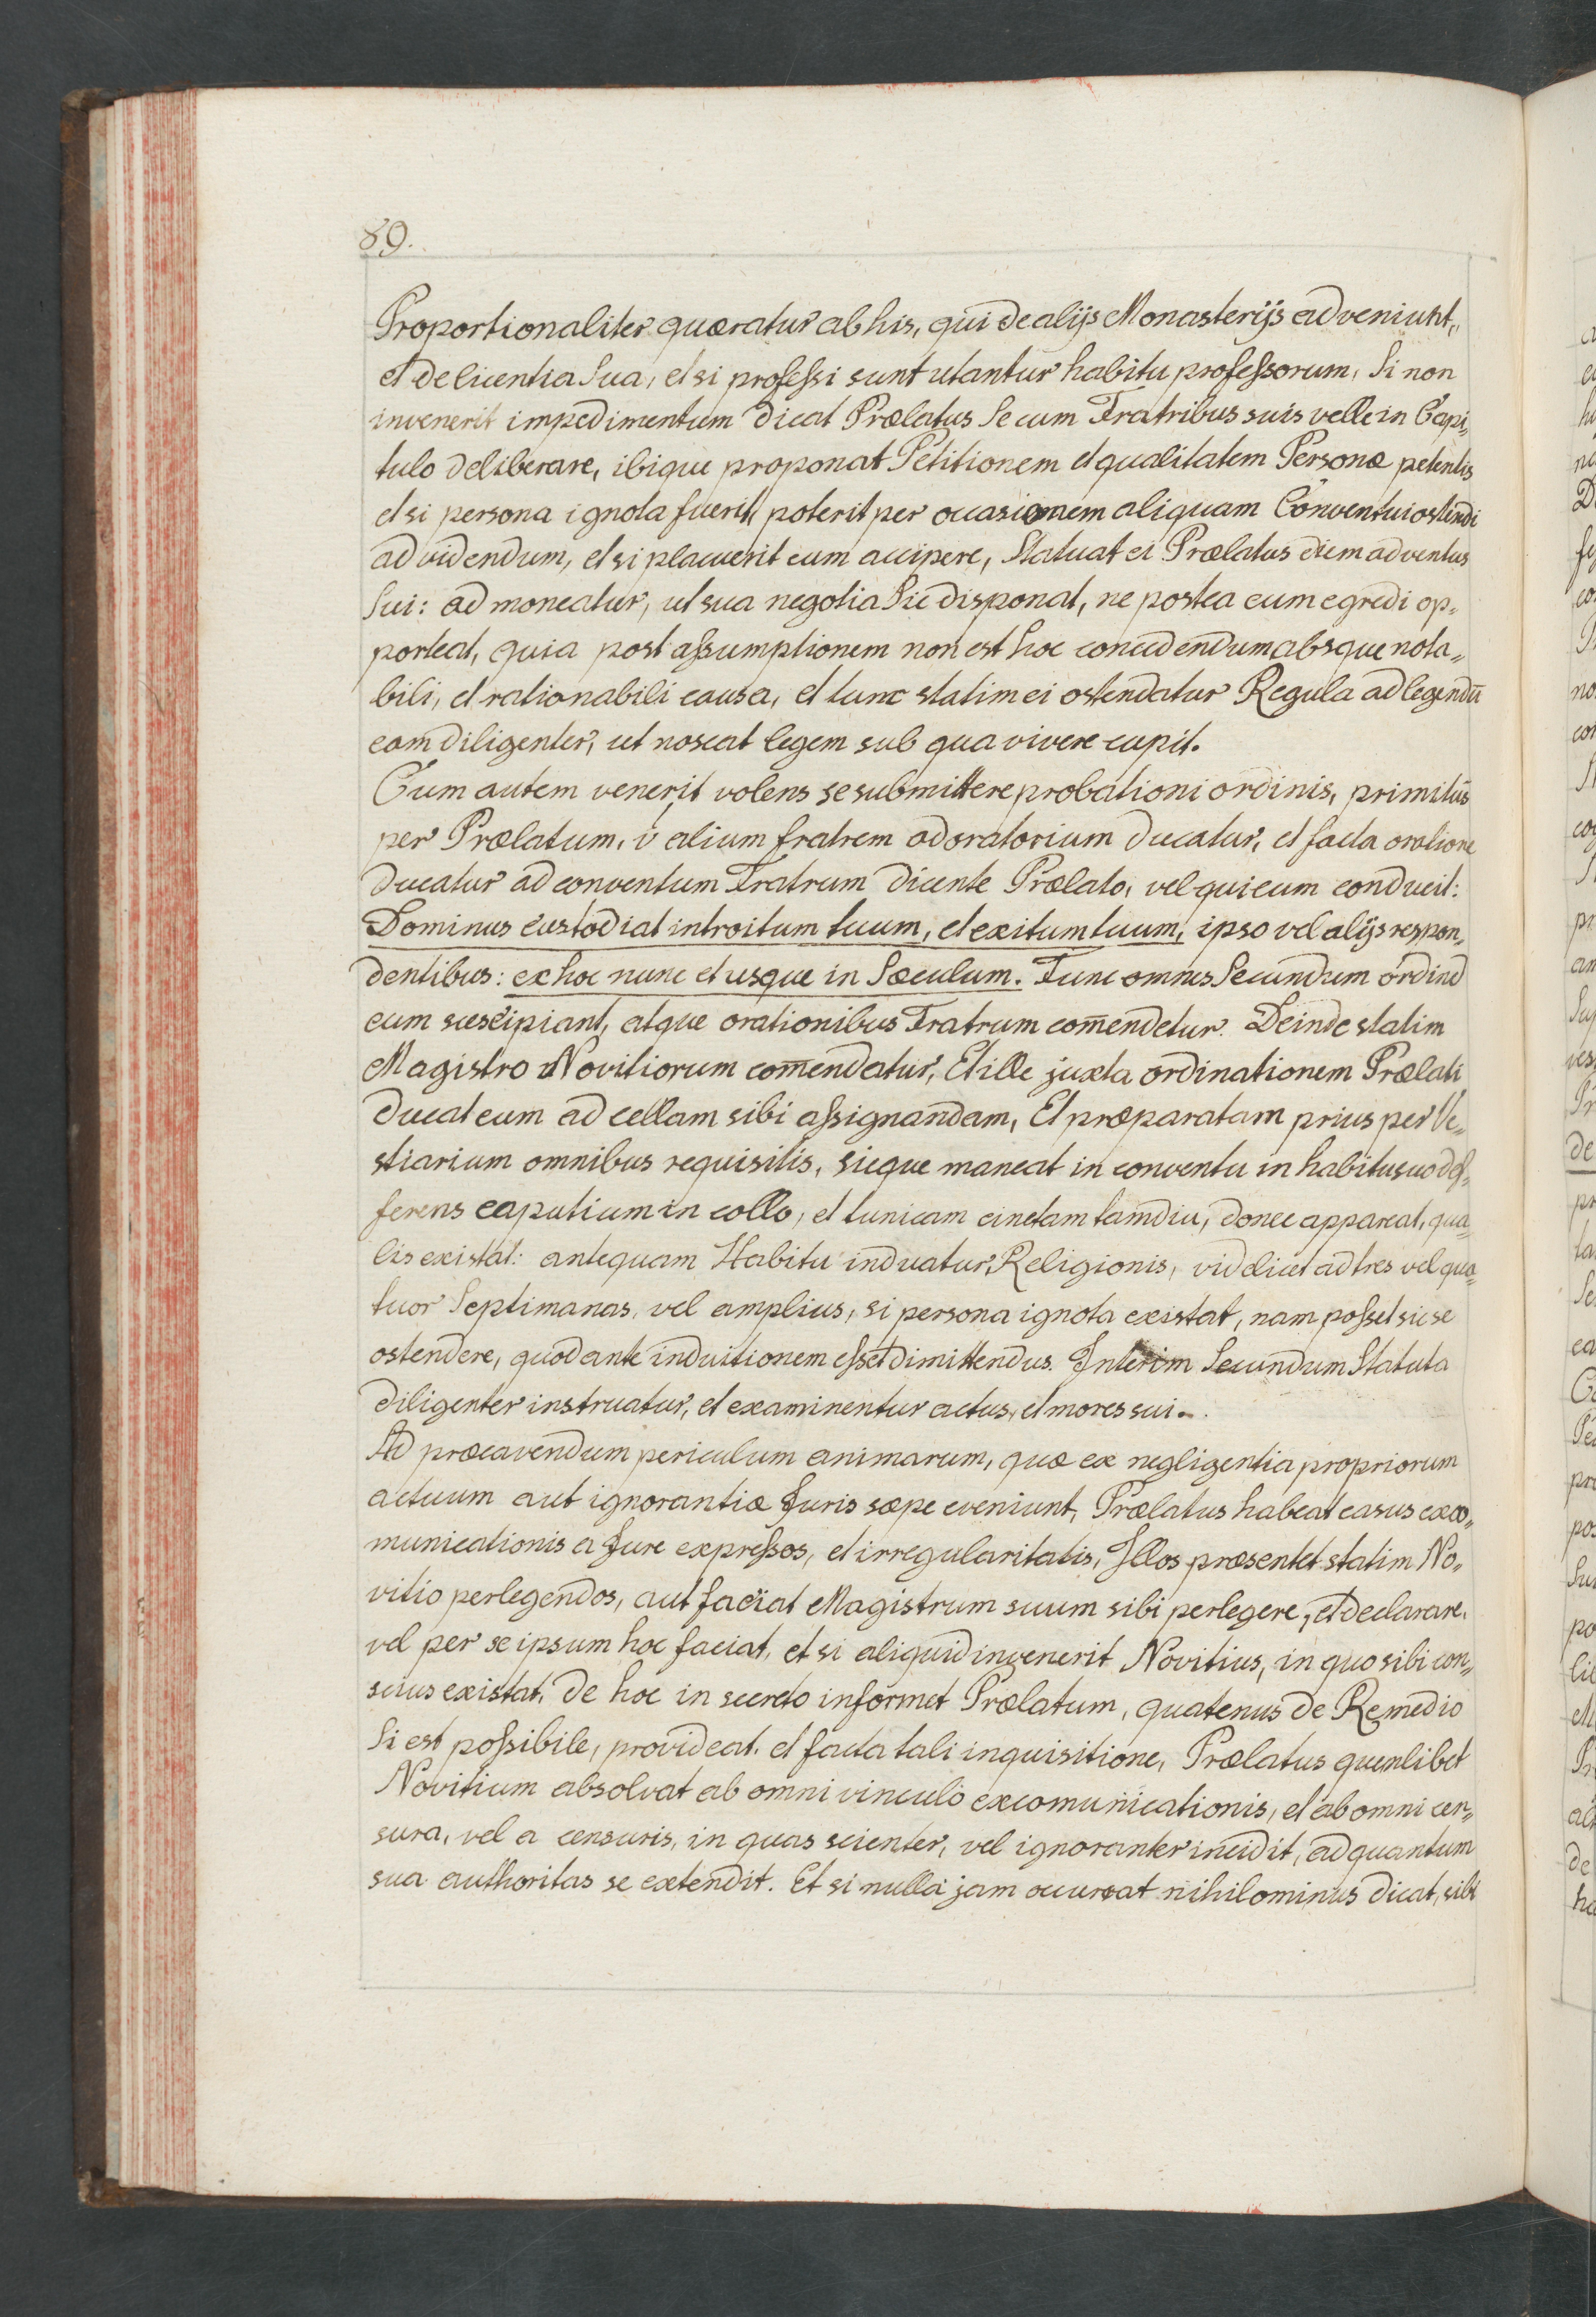 89.
Proportionaliter quæratur ab his, qui de alijs Monasterijs adveniunt,
et de licentia Sua, et si profeſsi sunt utantur habitu profeſsorum, Si non
invenerit impedimentum dicat Prælatus Se cum Fratribus suis velle in Capi„
tulo deliberare, ibique proponat Petitionem et qualitatem Personæ petentis
et si persona ignota fuerit, poterit per occasionem aliquam Conventui ostendi
ad videndum, et si placuerit eum accipere, Statuat ei Prælatus diem adventus
Sui: admoneatur, ut sua negotia Sic disponat, ne postea eum egredi op„
porteat, quia post aſsumptionem non est hoc concedendum absque nota„
bili, et rationabili causa, et tunc statim ei ostendatur Regula ad legendū
eam diligenter, ut noscat legem sub qua vivere cupit.
Cum autem venerit volens se submittere probationi ordinis, primitus
per Prælatum, v́ alium fratrem ad oratorium ducatur, et facta oratione
ducatur ad conventum Fratrum dicente Prælato, vel qui eum conducit:
Dominus custodiat introitum tuum, et exitum tuum, ipso vel alijs respon„
dentibus: ex hoc nunc et usque in Sæculum. Tunc omnes Secundum ordinē
eum suscipiant, atque orationibus Fratrum com̄endetur. Deinde statim
Magistro Novitiorum com̄endatur, Et ille juxta ordinationem Prælati
ducat eum ad cellam sibi aſsignandam, Et præparatam prius per Ve„
stiarium omnibus requisitis, sicque maneat in conventu in habitu suo def„
ferens caputium in collo, et tunicam cinctam tamdiu, donec appareat, qua„
lis existat: antequam Habitu induatur Religionis, videlicet ad tres vel qua„
tuor Septimanas, vel amplius, si persona ignota existat, nam poſset sic se
ostendere, quod ante induitionem eſset dimittendus. Interim Secundum Statuta
diligenter instruatur, et examinentur actus, et mores sui.
Ad præcavendum periculum animarum, quæ ex negligentia propriorum
actuum aut ignorantiæ Juris sæpe eveniunt, Prælatus habeat casus exco„
municationis a Jure expreſsos, et irregularitatis, Illos præsentet statim No„
vitio perlegendos, aut faciat Magistrum suum sibi perlegere, et declarare,
vel per se ipsum hoc faciat, et si aliquid invenerit Novitius, in quo sibi con„
scius existat, de hoc in secreto informet Prælatum, quatenus de Remedio
Si est poſsibile, provideat, et facta tali inquisitione, Prælatus quemlibet
Novitium absolvat ab omni vinculo excomunicationis, et ab omni cen„
sura, vel a censuris, in quas scienter, vel ignoranter incidit, ad quantum
sua authoritas se extendit. Et si nulla jam occurrat nihilominus dicat, sibi